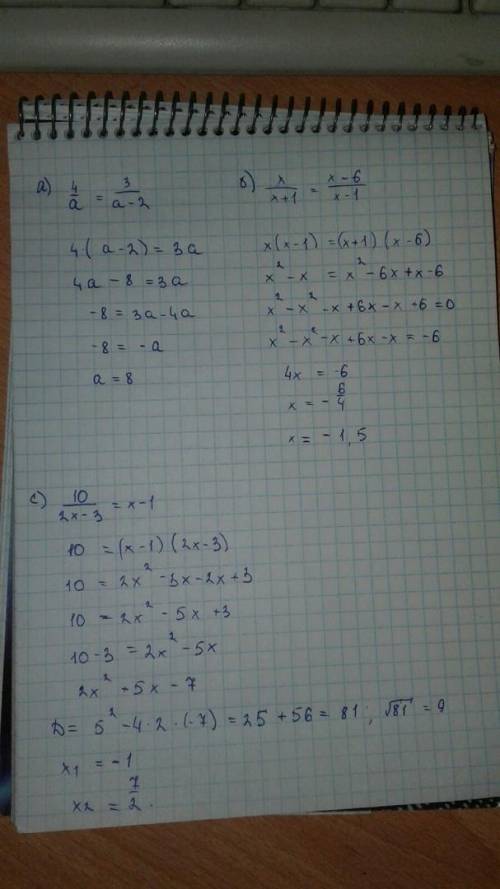 а) 4/a = 3/(a-2)
4(a-2) = 3a
4a - 8 = 3a
-8 = 3a - 4a
-8 = -a
a = 8
б) x/(x+1) = (x-6)/(x-1)
x(x-1) = (x+1)(x-6)
x² - x = x² - 6x + x - 6
x² - x² - x + 6x - x + 6 = 0
x² - x² - x + 6x - x = -6
4x = -6
x = - 6/4
x = - 1,5
c) 10/(2x-3) = x-1
10 = (x-1)(2x-3)
10 = 2x² - 3x - 2x + 3
10 = 2x² - 5x + 3
10 - 3 = 2x² - 5x
2x² + 5x - 7
D = 5² - 4·2·(-7) = 25 + 56 = 81; √81 = 9
x1 = -1
x2 = 7/2.